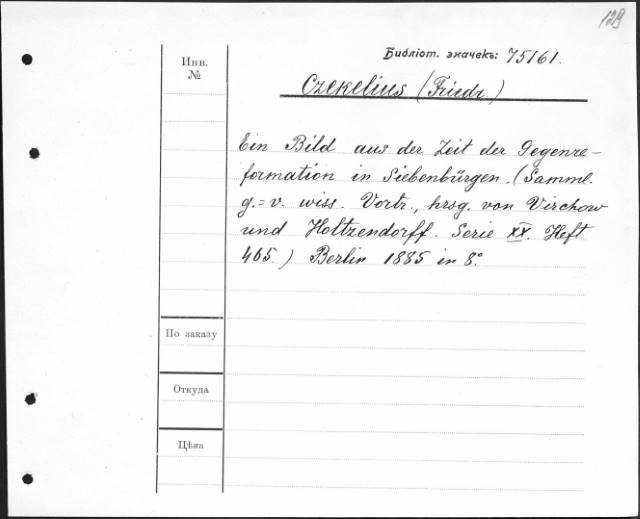 129
Библіот. значекъ: 75161.
Инв.
№
Czekelius (Friedr.)
Ein Bild aus der Zeit der Gegenre-
formation in Siebenbürgen. (Samml.
g.=v. wiss. Vortr., hrsg. von Virchow
und Holtzendorff. Serie XX. Heft
465.) Berlin 1885 in 8º.
По заказу
Откуда
Цѣна